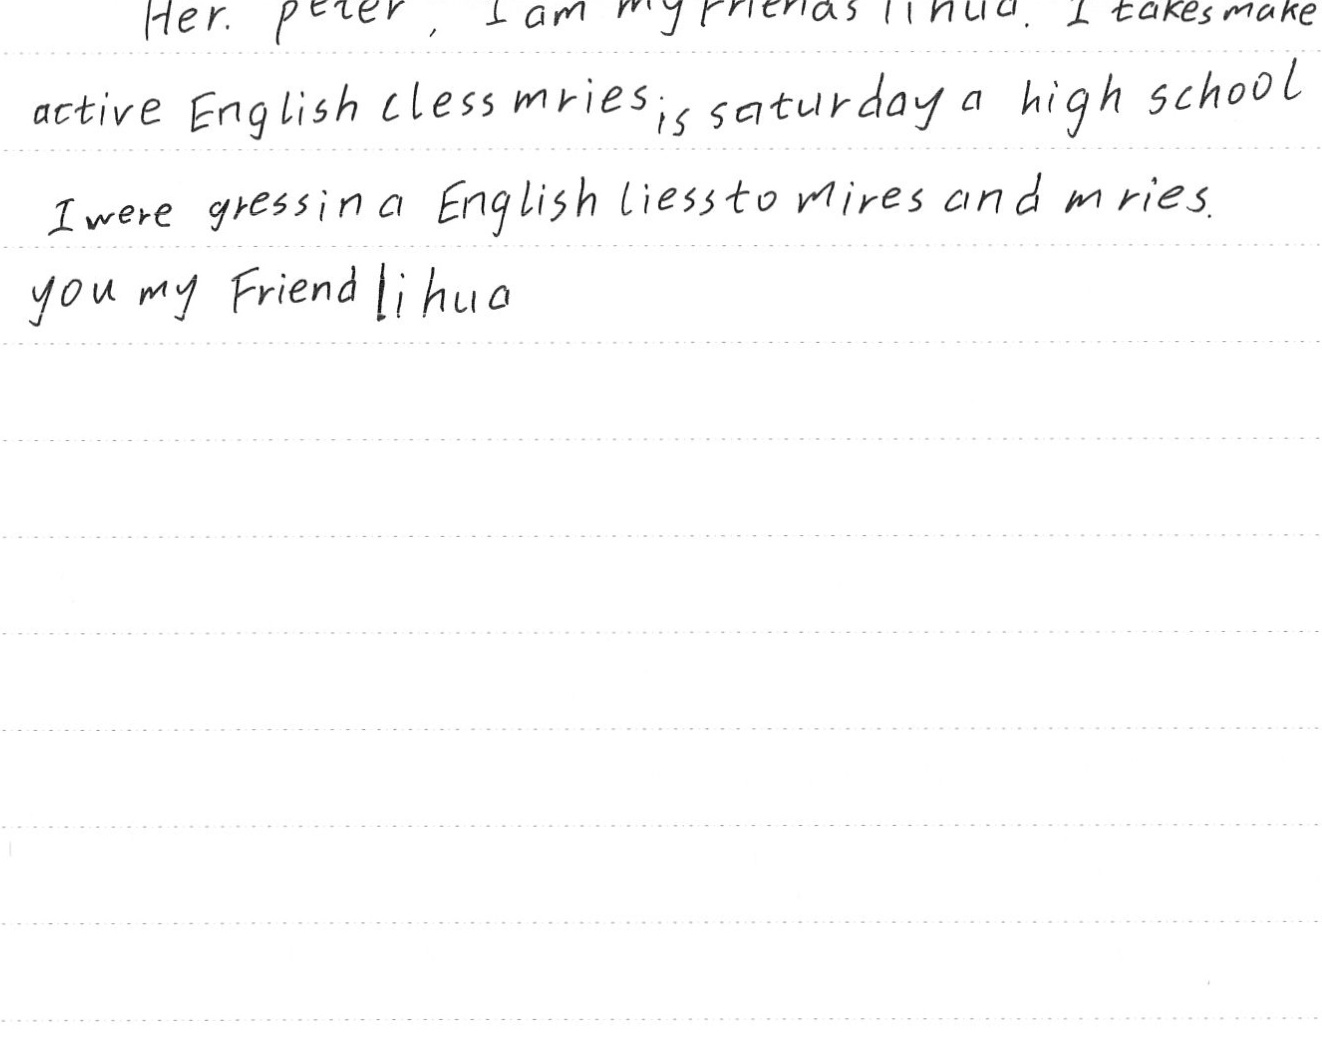 Her. peter, I am my Friends lihua. I takes make
active English cless mries, is saturday a high school
I were gress in a English liess to Mires and mries.
you my Friend li hua